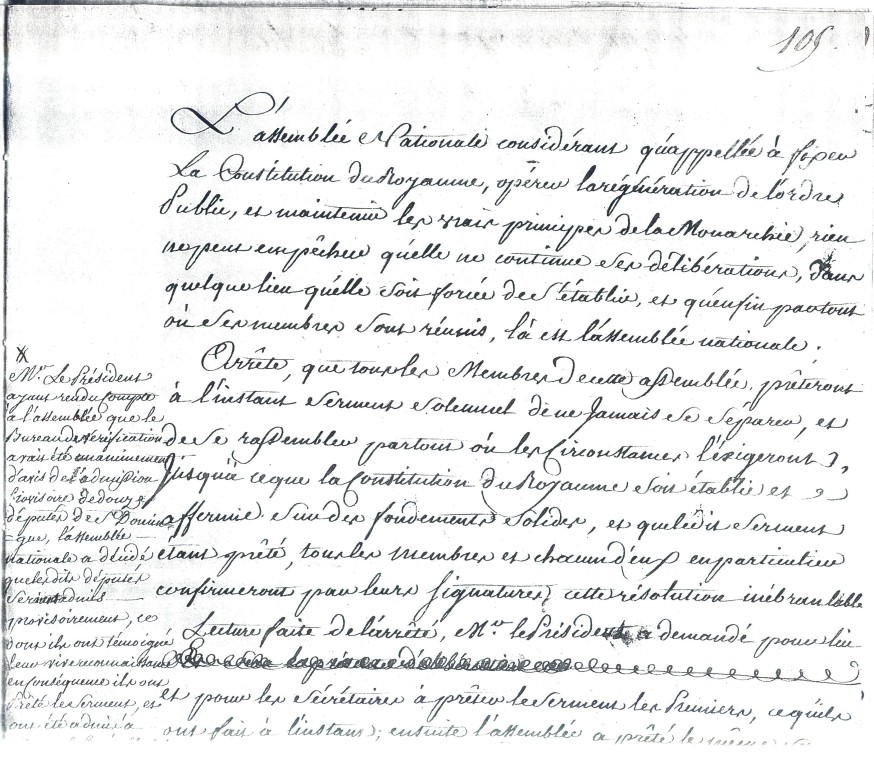 105
L'assemblée Nationale considérant qu'appellée à fixer
La Constitution du Royaume, opérer la régénération de l'ordre
Public, et maintenir les vrais principes de la Monarchie, rien
ne peut empêcher qu'elle ne continue ses délibérations, dans
quelque lieu qu'elle soit forcée de s'établir, et qu'enfin partout
où ses membres sont réunis, là est l'assemblée nationale.
Arrête, que tous les Membres de cette assemblée, prêteront
à l'instant serment solennel de ne Jamais se séparer, et
de se rassembler partout où les Circonstances l'éxigeront,
Jusqu'à ce que la Constitution du Royaume soit établie et
affermie sur des fondements solides, et que ledit serment
étant prêté, tous les membres et chacun d'eux en particulier
confirmeront par leurs signatures, cette résolution inébranlable
Lecture faite de l'arrêté, Mr. le Président a demandé pour lui
et pour les Sécrétaires à prêter le serment les Premiers, ce qu'ils
ont fait à l'instant; ensuite l'assemblée a prêté le même
Mr. Le Président
ayant rendu compte
à l'assemblée que le
Bureau de vérification
avait été unanimement
d'avis de l'admission
Provisoire de douze
députés de St Domin
-gue, l'assemblée
nationale a décidé
que lesdits députés
seraient admis
provisoirement, ce
dont ils ont témoigné
leur vive reconnaissance
en conséquence ils ont
Prêté le serment, et
ont été admis à